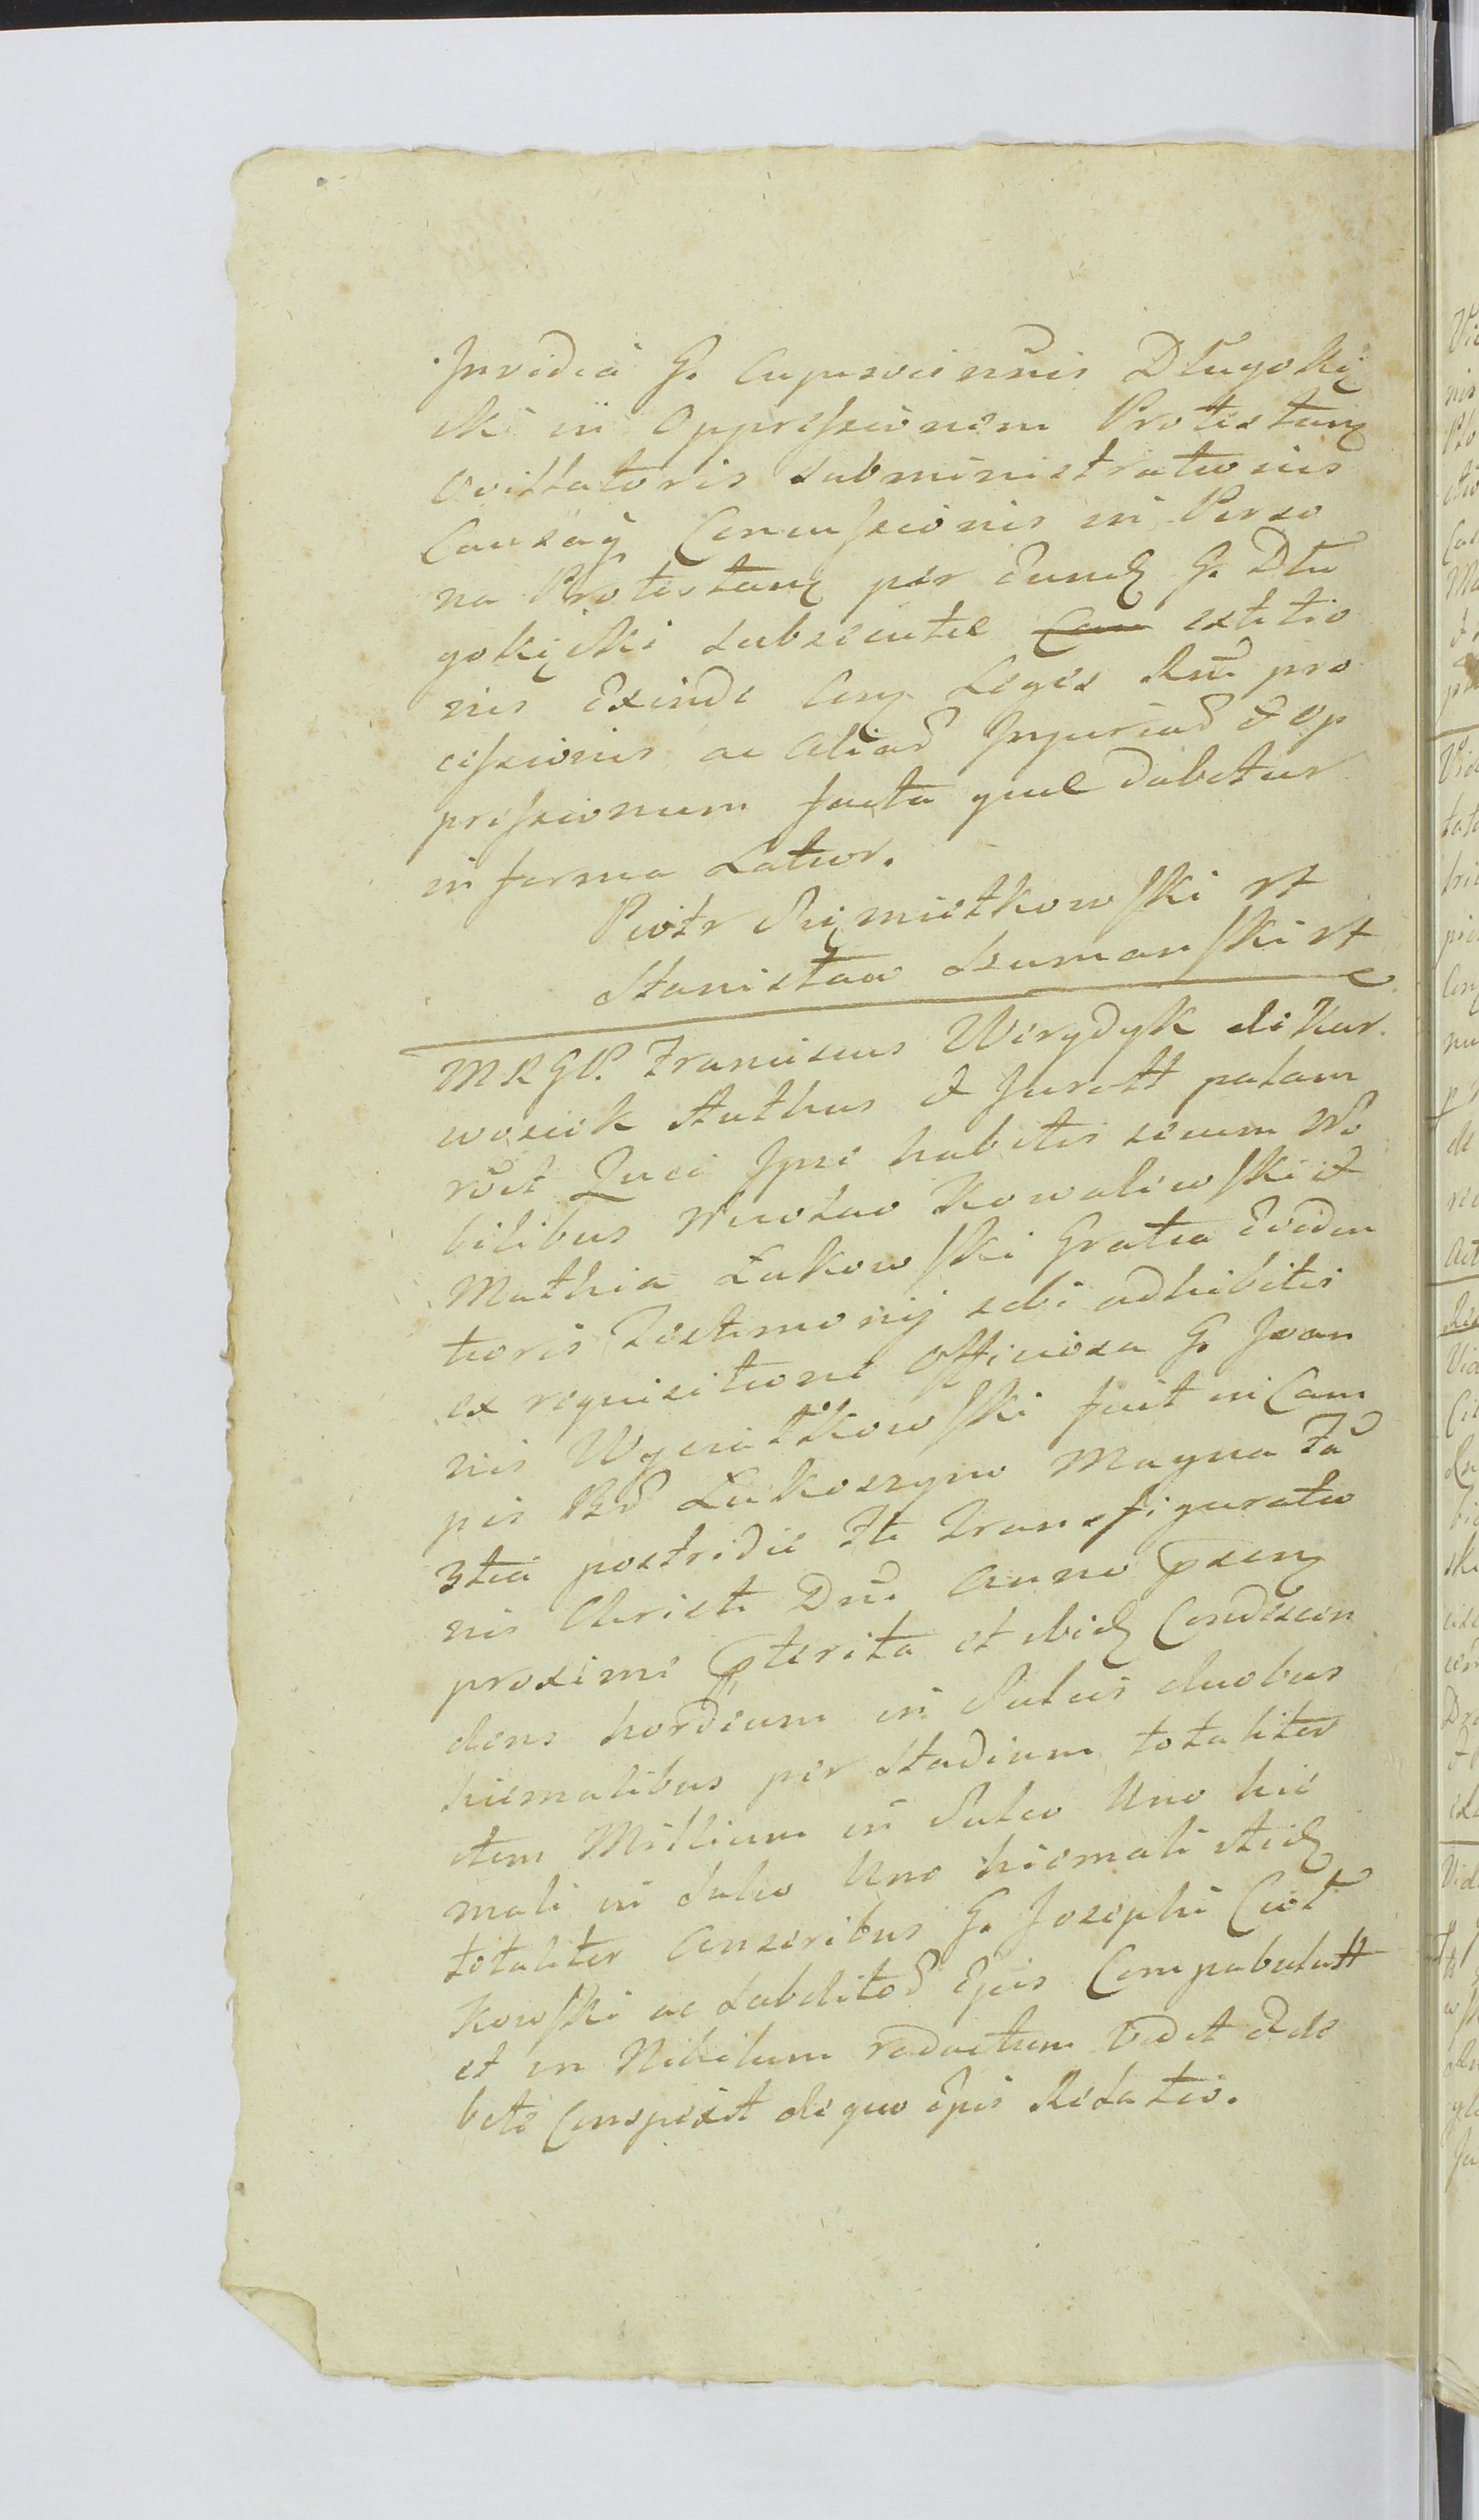 Invidia G. Cupuscinnis Długoki
ski in Oppressionem Protestan
Ovillatoris Subministrationis
Causaq Concussionis in Perso
na Protestan per eund G. Dłu
gokiski Subsecutae extitio
nis Exinde Leges pro
cessionis ac aliad Injuriad & op
pressionum facta quae dabetur
in forma Latior.
Piotr Siemietkowski
Stanisław Szumanski
MRGP. Franciscus Werydyk de Kur
wosiek Authus & Juratt palam
root Quei Ipse habitis secum No
bilibus Nicolao Kowalewski &
Mathia Łukowski Gratia Eviden
tioris Testimonij sibi adhibitis
ex requisitione Officiosa G. Joan
nis Wyciatkowski fuit in Cam
pis Bd Łukoszyno Magna Fa
3tia postridie Fti Transfiguratio
nis Christi Dni Anno psen
proxime pterita et ibid Condescen
dens hordeum in Sulcis duobus
hiemalibus per Stadium totaliter
item Millium in Sulco Uno hie
mali in Sulco Uno hiemali itid
totaliter Anseribus G. Josephi Ciot
kowski ac Subditod Ejus Compabulatt
et in Nihilum redactum vidit & de
bite Conspexit de quo Ejus Relatio.